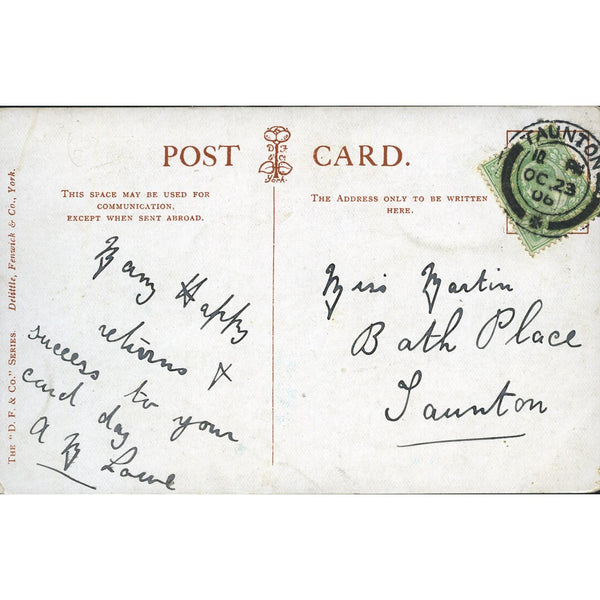 POST CARD.
D F & Co York.
THIS SPACE MAY BE USED FOR
COMMUNICATION,
EXCEPT WHEN SENT ABROAD.
THE ADDRESS ONLY TO BE WRITTEN
HERE.
TAUNTON
OC 23
06
Many Happy
returns &
success to your
card day
A M Lowe
Miss Martin
Bath Place
Taunton
THE "D. F. & CO." SERIES.
Delittle, Fenwick & Co., York.